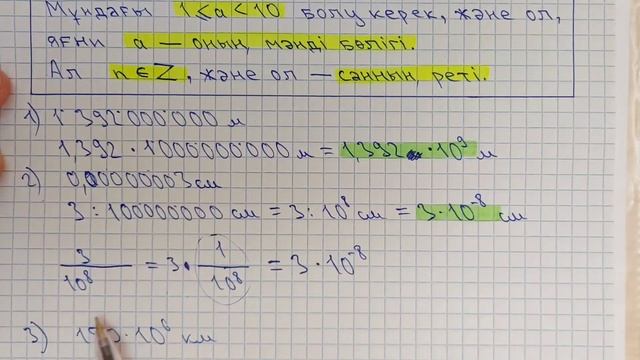 Мұндағы 1⩽a<10 болу керек, және ол,
яғни a — оның мәнді бөлігі.
Ал n∈Z, және ол — санның реті.
1) 1 392 000 000 м
1,392 · 1 000 000 000 м = 1,392 · 10⁹ м
2) 0,00000003 см
3 : 100000000 см = 3 : 10⁸ см = 3 · 10⁻⁸ см
3/10⁸ = 3 · 1/10⁸ = 3 · 10⁻⁸
3) · 10⁶ км